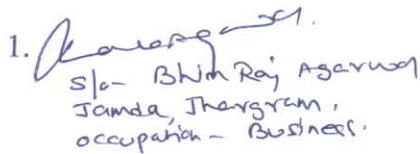 1.
S/o- Bhim Raj Agarwal
Jamda, Jhargram.
occupation - Business.